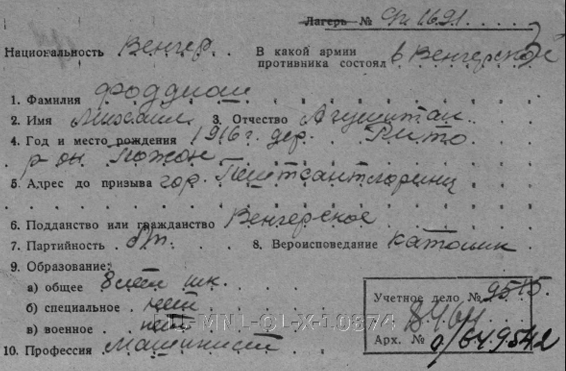 Лагерь № Фп 1621
Национальность Венгер. В какой армии
противника состоял в Венгерской
1. Фамилия Фоддиан
2. Имя Михаил 3. Отчество Агуштан
4. Год и место рождения 1916 г. дер. Гито
р-он Пожон
5. Адрес до призыва гор. Пештсантлоринц
6. Подданство или гражданство Венгерское
7. Партийность б/п. 8. Вероисповедание католик
9. Образование:
а) общее 8 лет шк.
б) специальное нет
в) военное нет
MNL-OL-X-10874
10. Профессия машинист
Учетное дело № 9515
Арх. № 0/649542